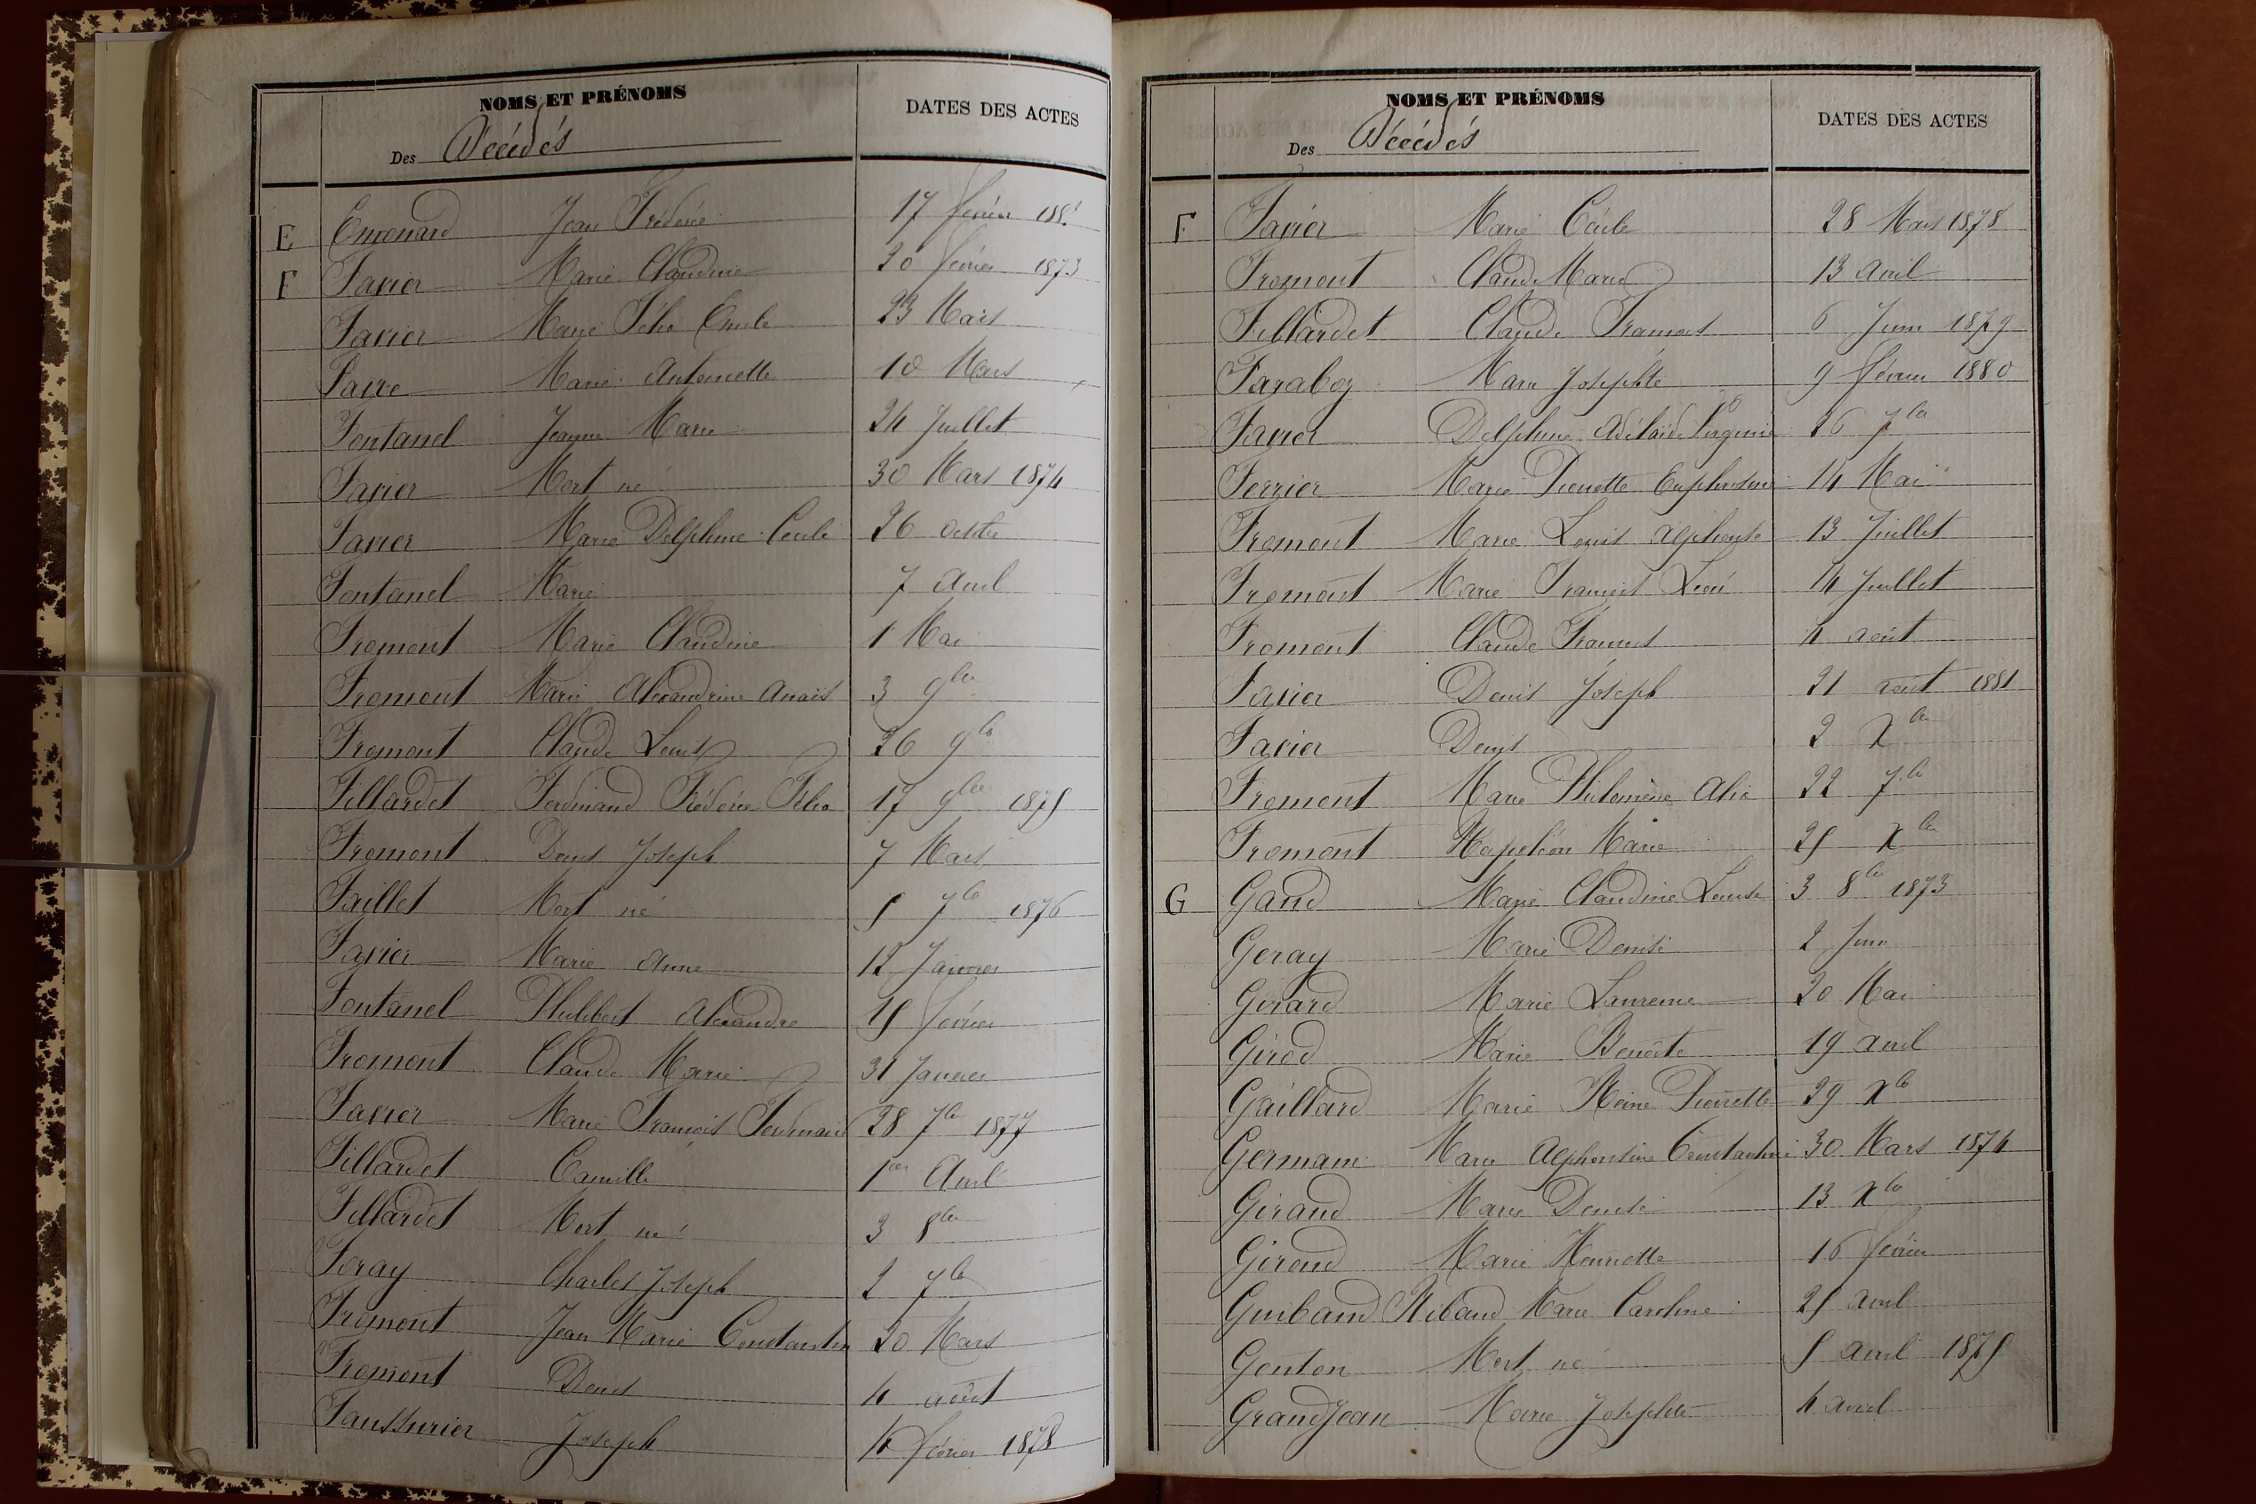 NOMS ET PRÉNOMS DATES DES ACTES
Des Décédés
E Emonard Jean Frédéric 17 février 188
F Favier Marie Claudine 20 février 1873
Favier Marie Félix Emile 23 Mars
Favre Marie Antoinette 10 Mars
Fontanel Jeanne Marie 24 Juillet
Favier Mort né 30 Mars 1874
Favier Marie Delphine Cécile 26 octobre
Fontanel Marie 7 avril
Fromont Marie Claudine 1 Mai
Fromont Marie Alexandrine Anaïs 3 9bre
Fromont Claude Louis 26 9bre
Fillardet Ferdinand Frédéric Félix 17 9bre 1875
Fromont Denis Joseph 7 Mars
Faillet Mort né 5 7bre 1876
Favier Marie Anne 12 Janvier
Fontanel Philibert Alexandre 15 février
Fromont Claude Marie 31 Janvier
Favier Marie François Fernand 28 7bre 1877
Fillardet Camille 1er Avril
Fillardet Mort né 3 8bre
Foray Charles Joseph 2 7bre
Fromont Jean Marie Constantin 20 Mars
Fromont Denis 4 août
Faussurier Joseph 14 février 1878
NOMS ET PRÉNOMS DATES DES ACTES
Des Décédés
F Favier Marie Cécile 28 Mars 1878
Fromont Claude Marie 13 avril
Fillardet Claude François 6 Juin 1879
Faraboz Marie Josephte 9 février 1880
Favier Delphine Adélaïde Virginie 26 7bre
Ferrier Marie Pierrette Euphrosine 14 Mai
Fromont Marie Louis Alphonse 13 Juillet
Fromont Marie François Léon 14 Juillet
Fromont Claude François 4 août
Favier Denis Joseph 21 août 1881
Favier Denys 2 Xbre
Fromont Marie Philomène Alix 22 7bre
Fromont Napoléon Marie 25 Xbre
G Gand Marie Claudine Louise 3 8bre 1873
Geray Marie Denise 2 Juin
Girard Marie Laurence 20 Mai
Girod Marie Benoîte 19 avril
Gaillard Marie Reine Pierrette 29 Xbre
Germain Marie Alphonsine Constantine 30 Mars 1874
Giraud Marie Denise 13 Xbre
Giroud Marie Henriette 16 février
Guibaud Nibaud Marie Caroline 25 avril
Genton Mort né 5 avril 1875
GrandJean Marie Josephte 4 avril